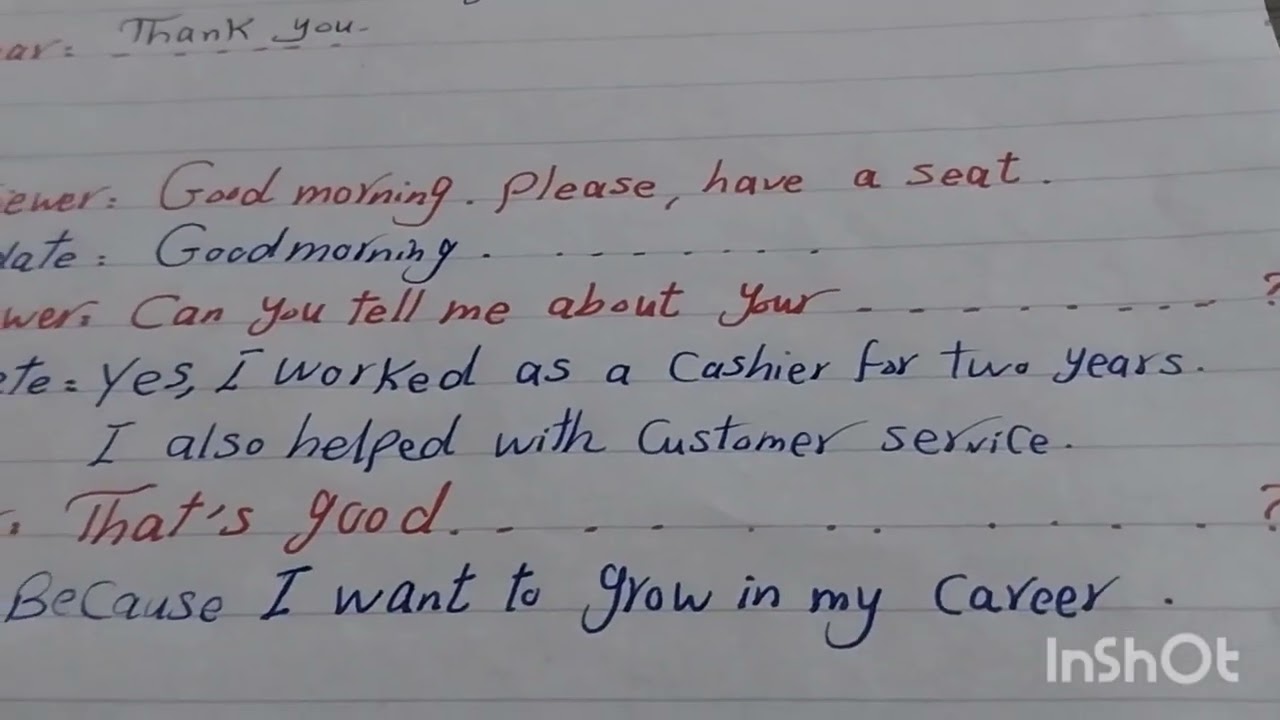 ar: Thank you.
ewer: Good morning. Please, have a seat.
date: Good morning. . . . . . . . .
wer: Can you tell me about your - - - - - - - - ?
te: Yes, I worked as a Cashier for two years.
I also helped with Customer service.
: That's good. - - - . . . . . . . ?
Because I want to grow in my Career.
InShOt